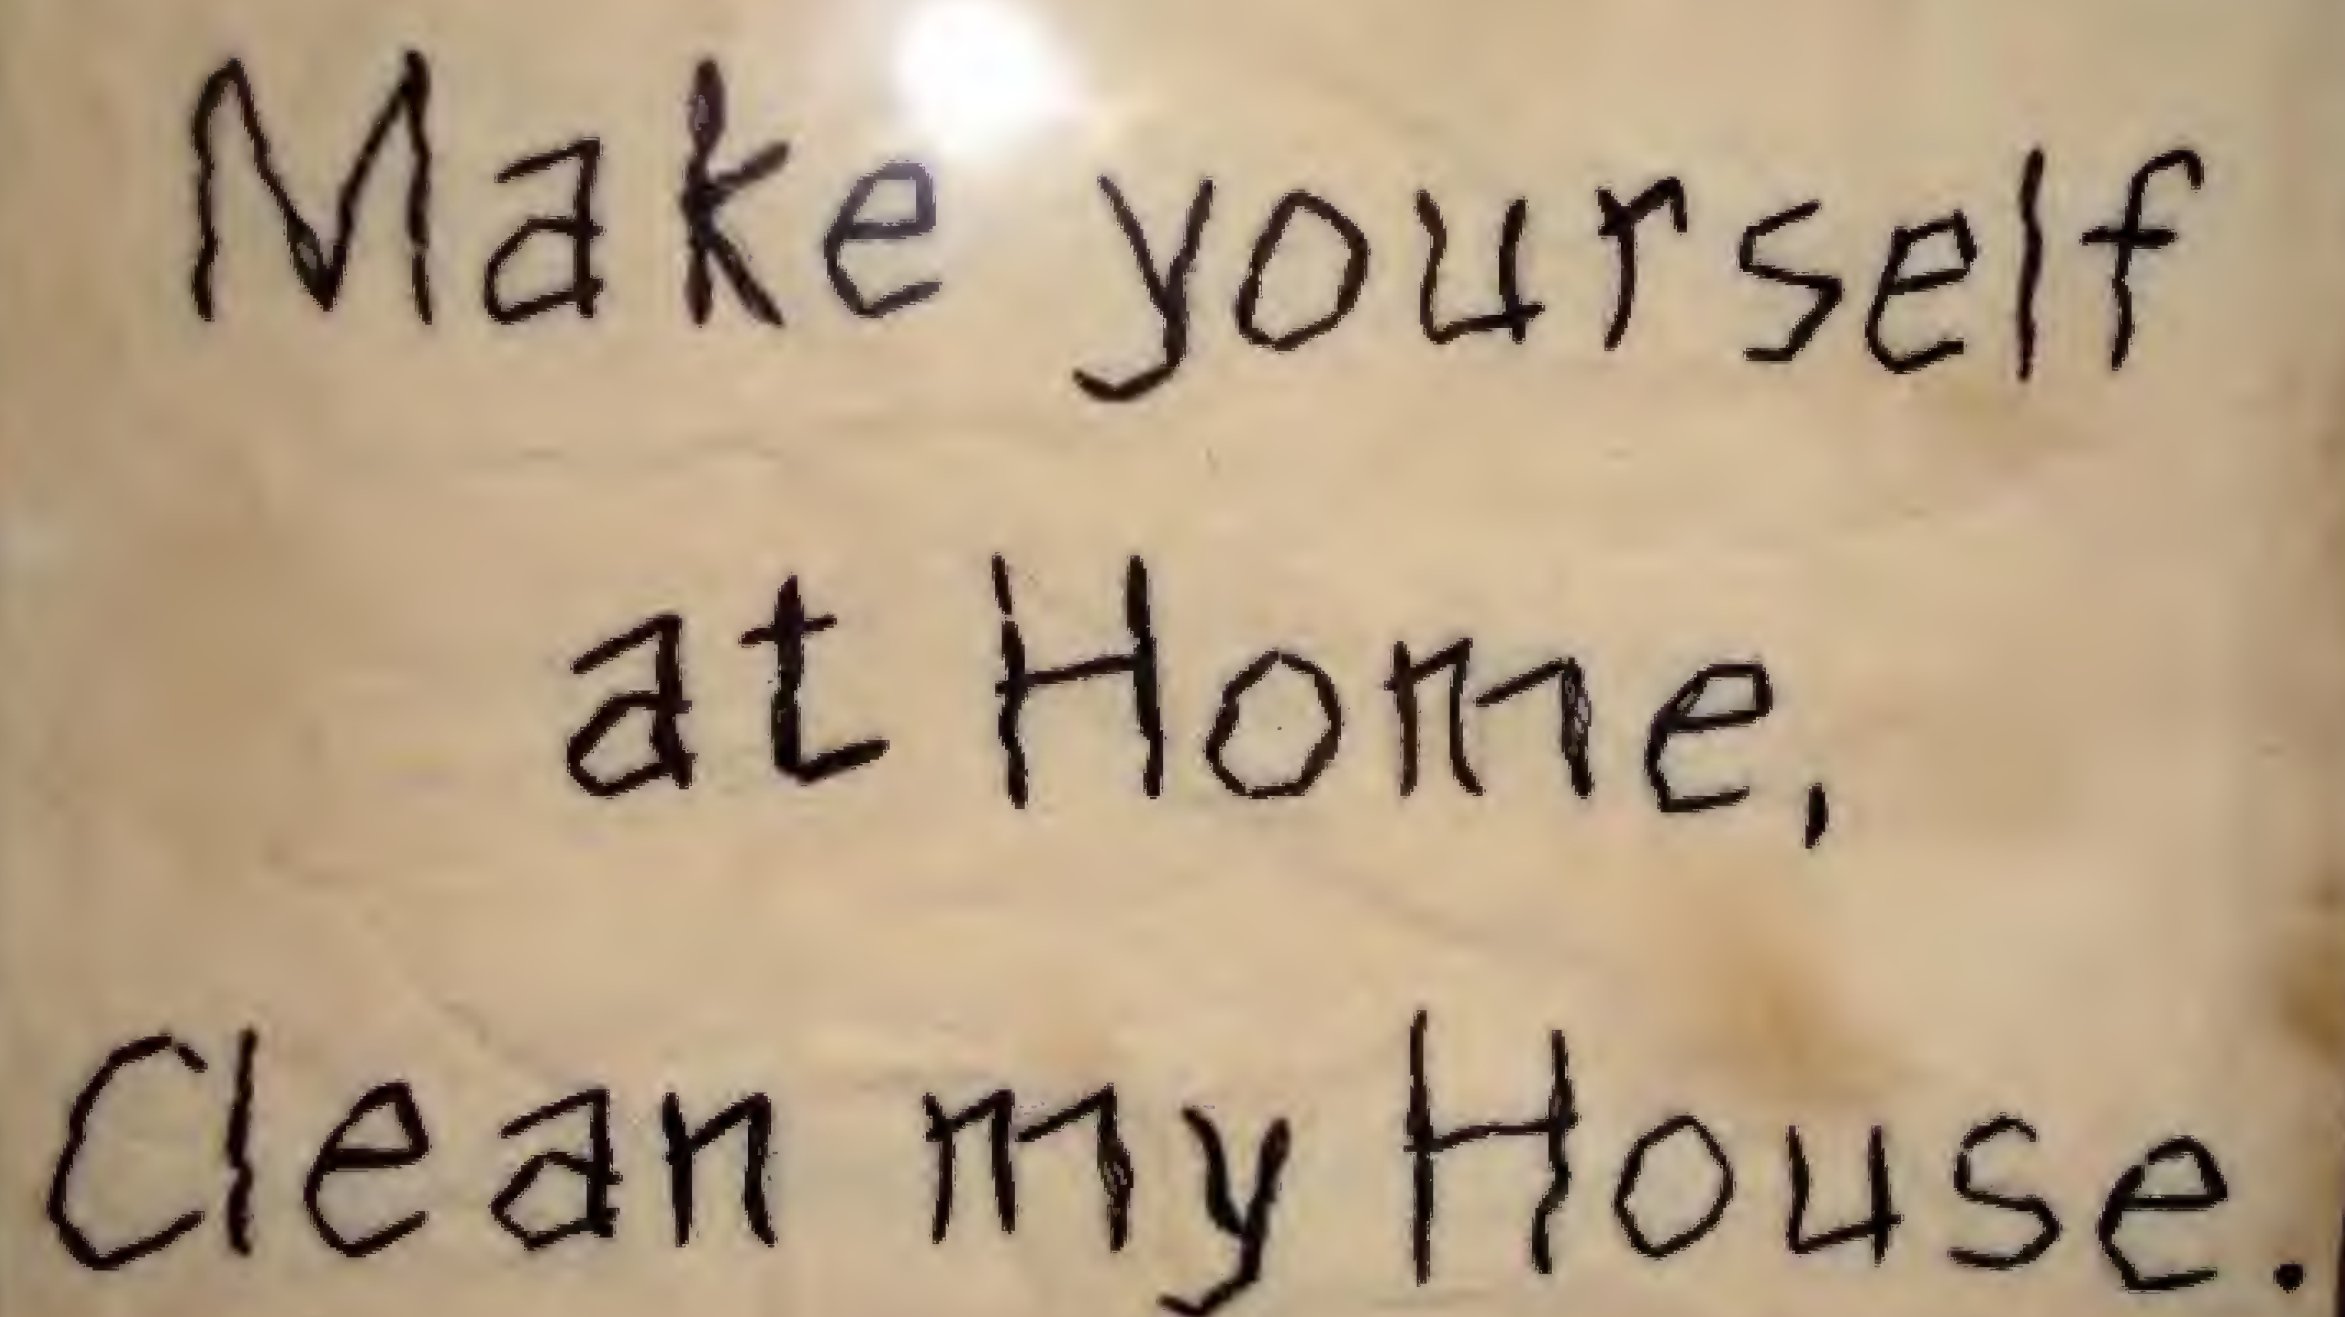 Make yourself
at Home,
Clean my House.